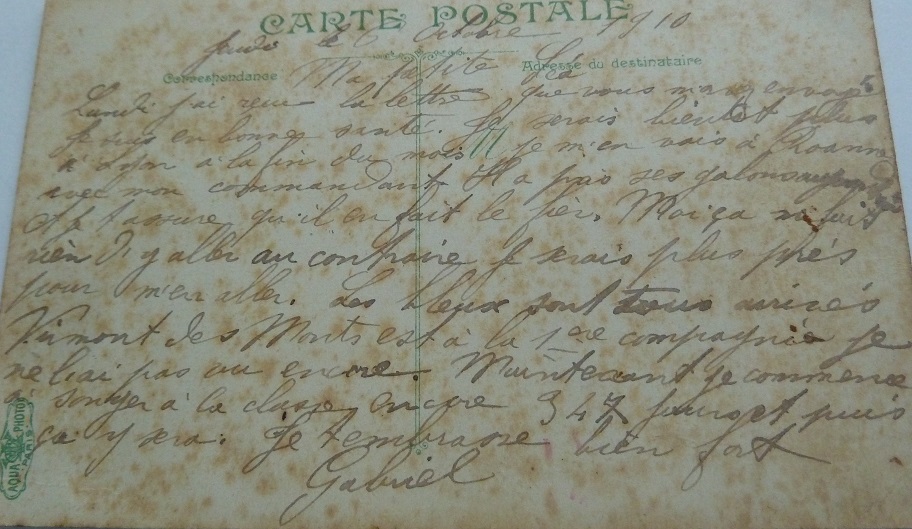 CARTE POSTALE
Jeudi le 6 Octobre 1910
Correspondance
Adresse du destinataire
Ma petite Léa
Lundi j'ai reçu la lettre que vous m'avez envoyé
Je suis en bonnes santé. Je serais bientôt plus
à à la fin du mois je m'en vais à Rhoanne
avec mon commandant Il a pris ses galons
et t'assure qu'il en fait le fier. Moi ça me fait
rien d'y aller au contraire je serais plus près
pour m'en aller. Les bleux sont tous arrivés
Vimont des Monts est à la 1ère compagnie je
ne l'ai pas vu encore. Maintenant je commence
à songer à la classe encore 347 jours et puis
ça y sera. Je t'embrasse bien fort
Gabriel
AQUA PHOTO
PARIS